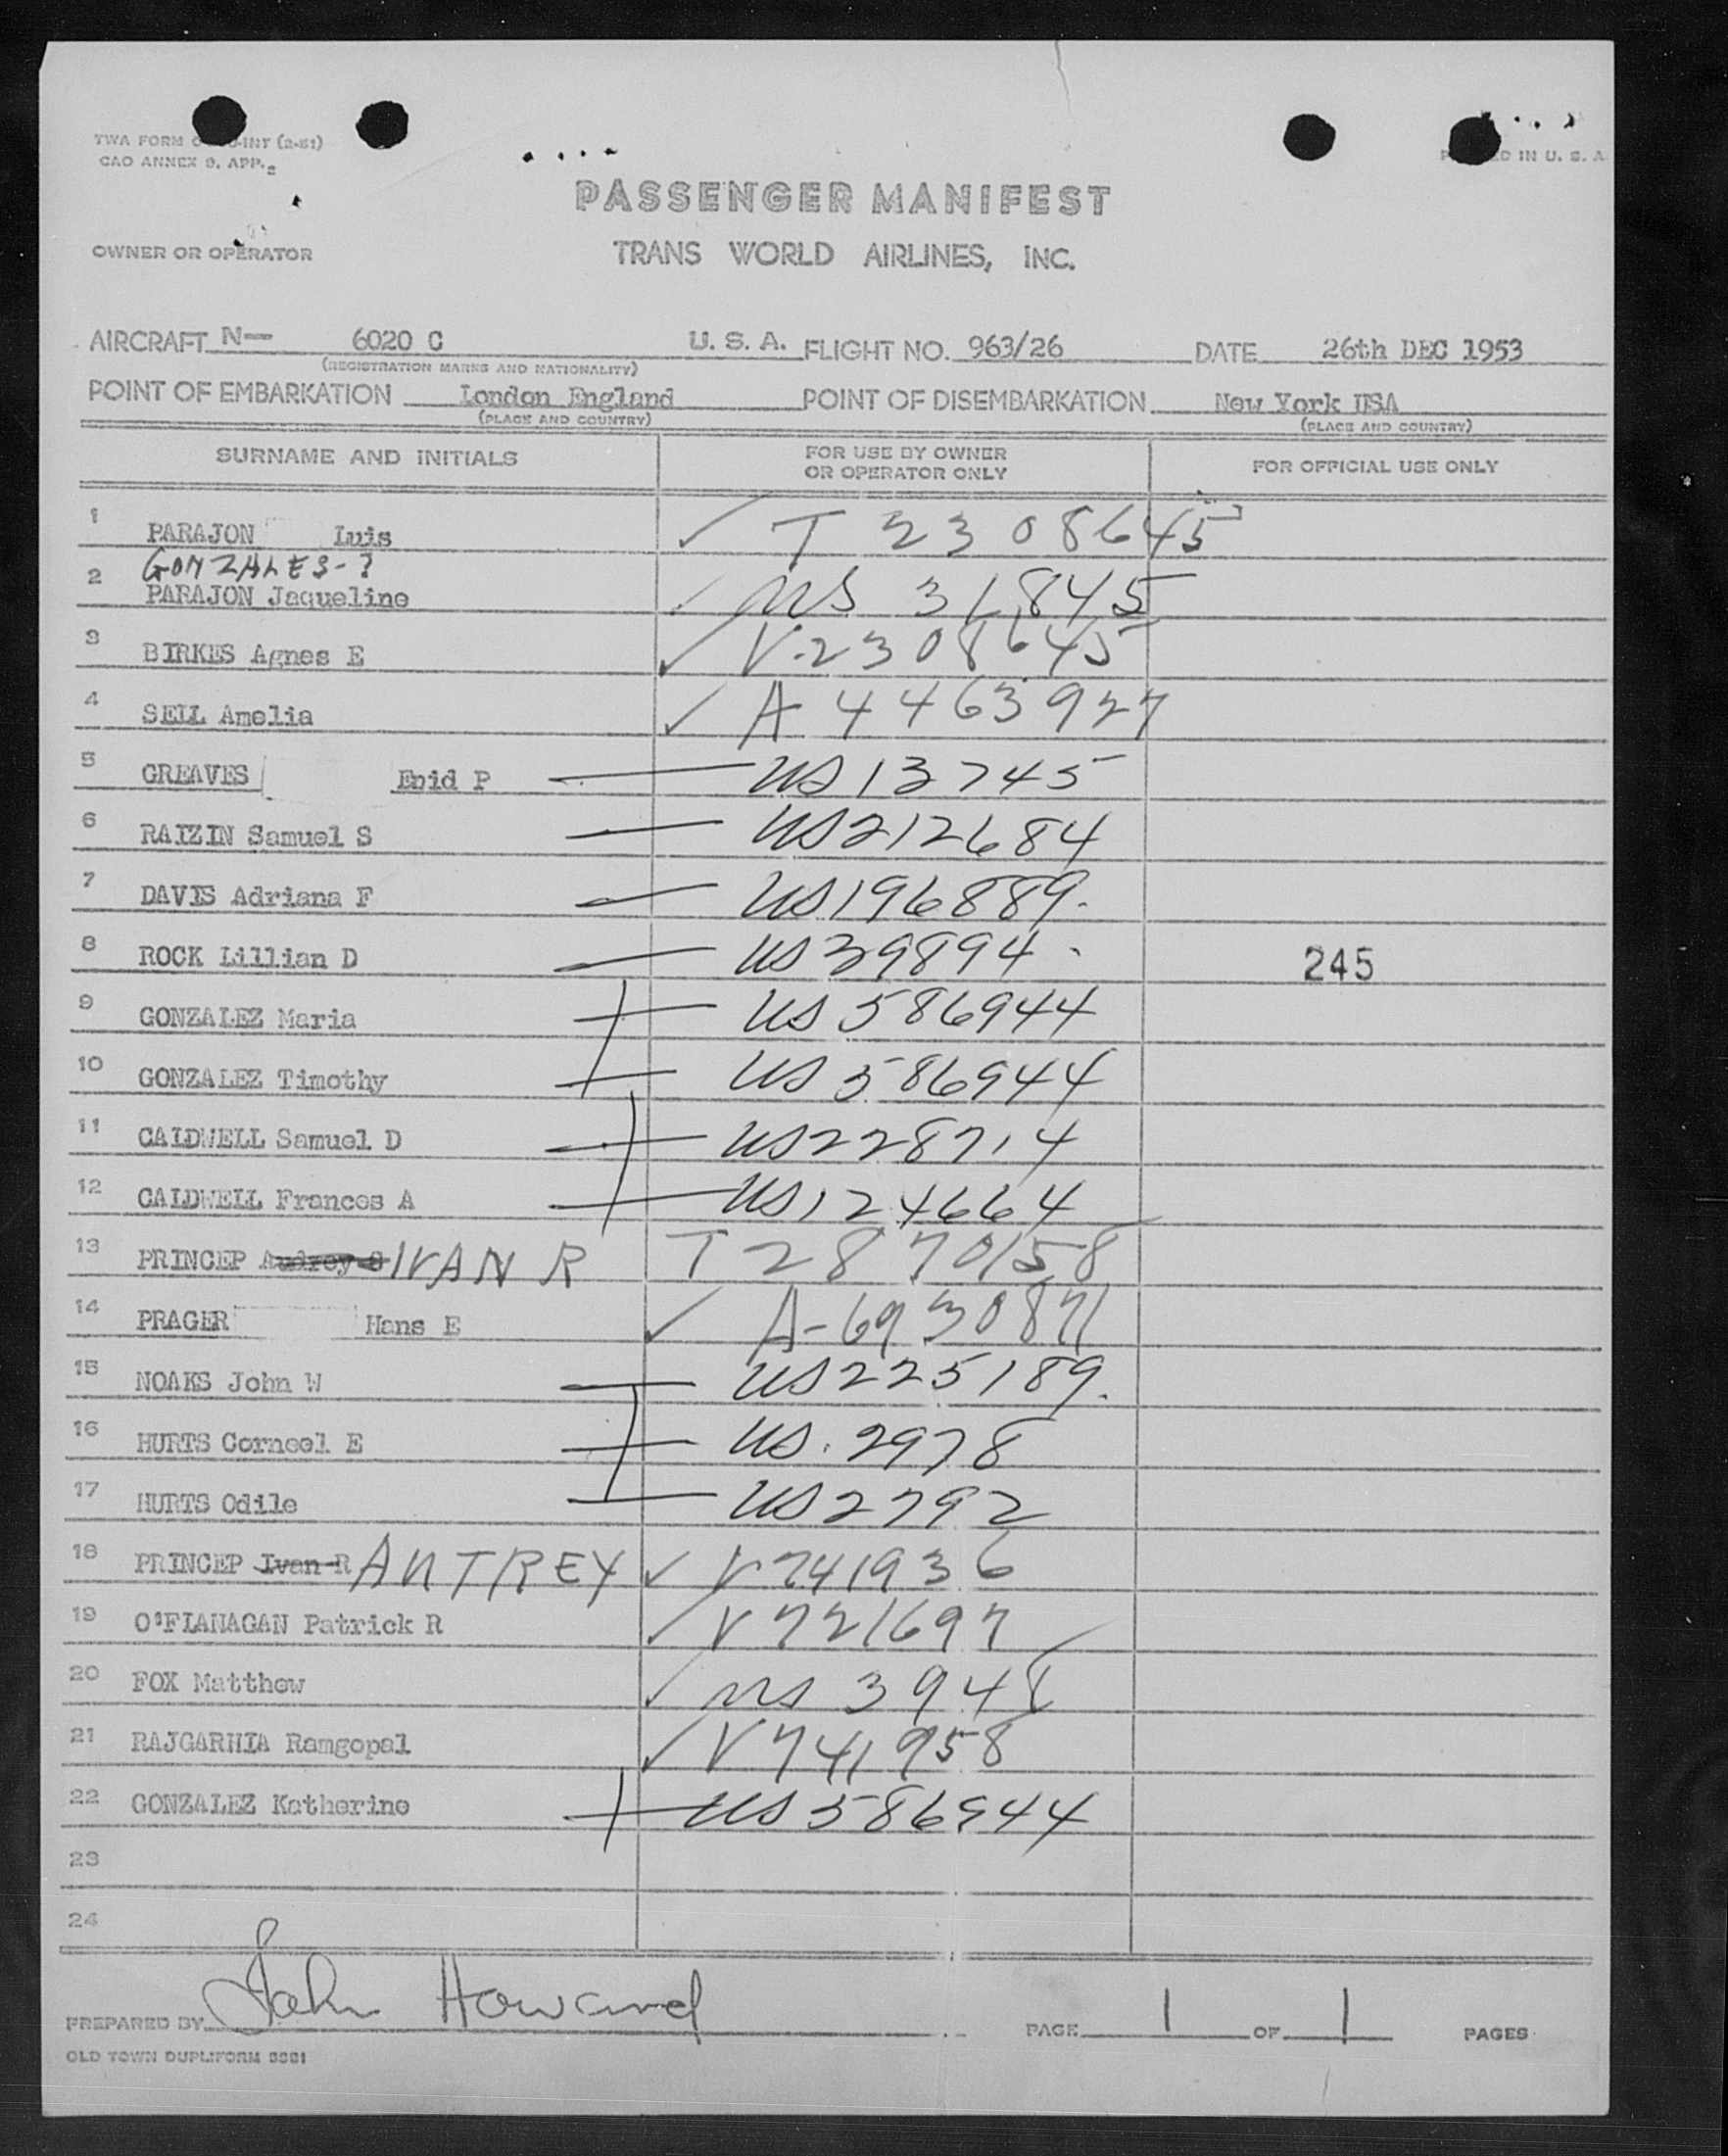 TWA FORM INT (2-51)
CAO ANNEX 9. APP. 2
IN U. S. A
PASSENGER MANIFEST
OWNER OR OPERATOR TRANS WORLD AIRLINES, INC.
AIRCRAFT N— 6020 C U. S. A. FLIGHT NO. 963/26 DATE 26th DEC 1953
(REGISTRATION MARKS AND NATIONALITY)
POINT OF EMBARKATION London England POINT OF DISEMBARKATION New York USA
(PLACE AND COUNTRY) (PLACE AND COUNTRY)
SURNAME AND INITIALS FOR USE BY OWNER OR OPERATOR ONLY FOR OFFICIAL USE ONLY
1 PARAJON Luis T 2308645
GONZALES-?
2 PARAJON Jaqueline 31845
3 BIRKES Agnes E V-2308645
4 SELL Amelia A 4463927
5 GREAVES Enid P US 13745
6 RAIZIN Samuel S US 212684
7 DAVIS Adriana F US 196889.
8 ROCK Lillian D US 39894 245
9 GONZALEZ Maria US 586944
10 GONZALEZ Timothy US 586944
11 CALDWELL Samuel D US 228714
12 CALDWELL Frances A US 124664
13 PRINCEP Audrey S IVAN R T 2870158
14 PRAGER Hans E A-6930871
15 NOAKS John W US 225189.
16 HURTS Corneel E US. 2978
17 HURTS Odile US 2792
18 PRINCEP Ivan R AUTREY V 741936
19 O'FLANAGAN Patrick R V 721697
20 FOX Matthew 3948
21 RAJGARHIA Ramgopal V 741958
22 GONZALEZ Katherine US 586944
23
24
PREPARED BY John Howard PAGE 1 OF 1 PAGES
OLD TOWN DUPLIFORM